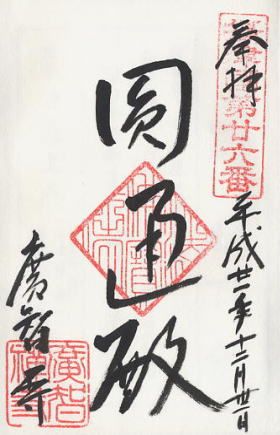 奉拝
第廿六番
平成廿一年十二月廿一日
圓通殿
廣智寺
廣智禪寺